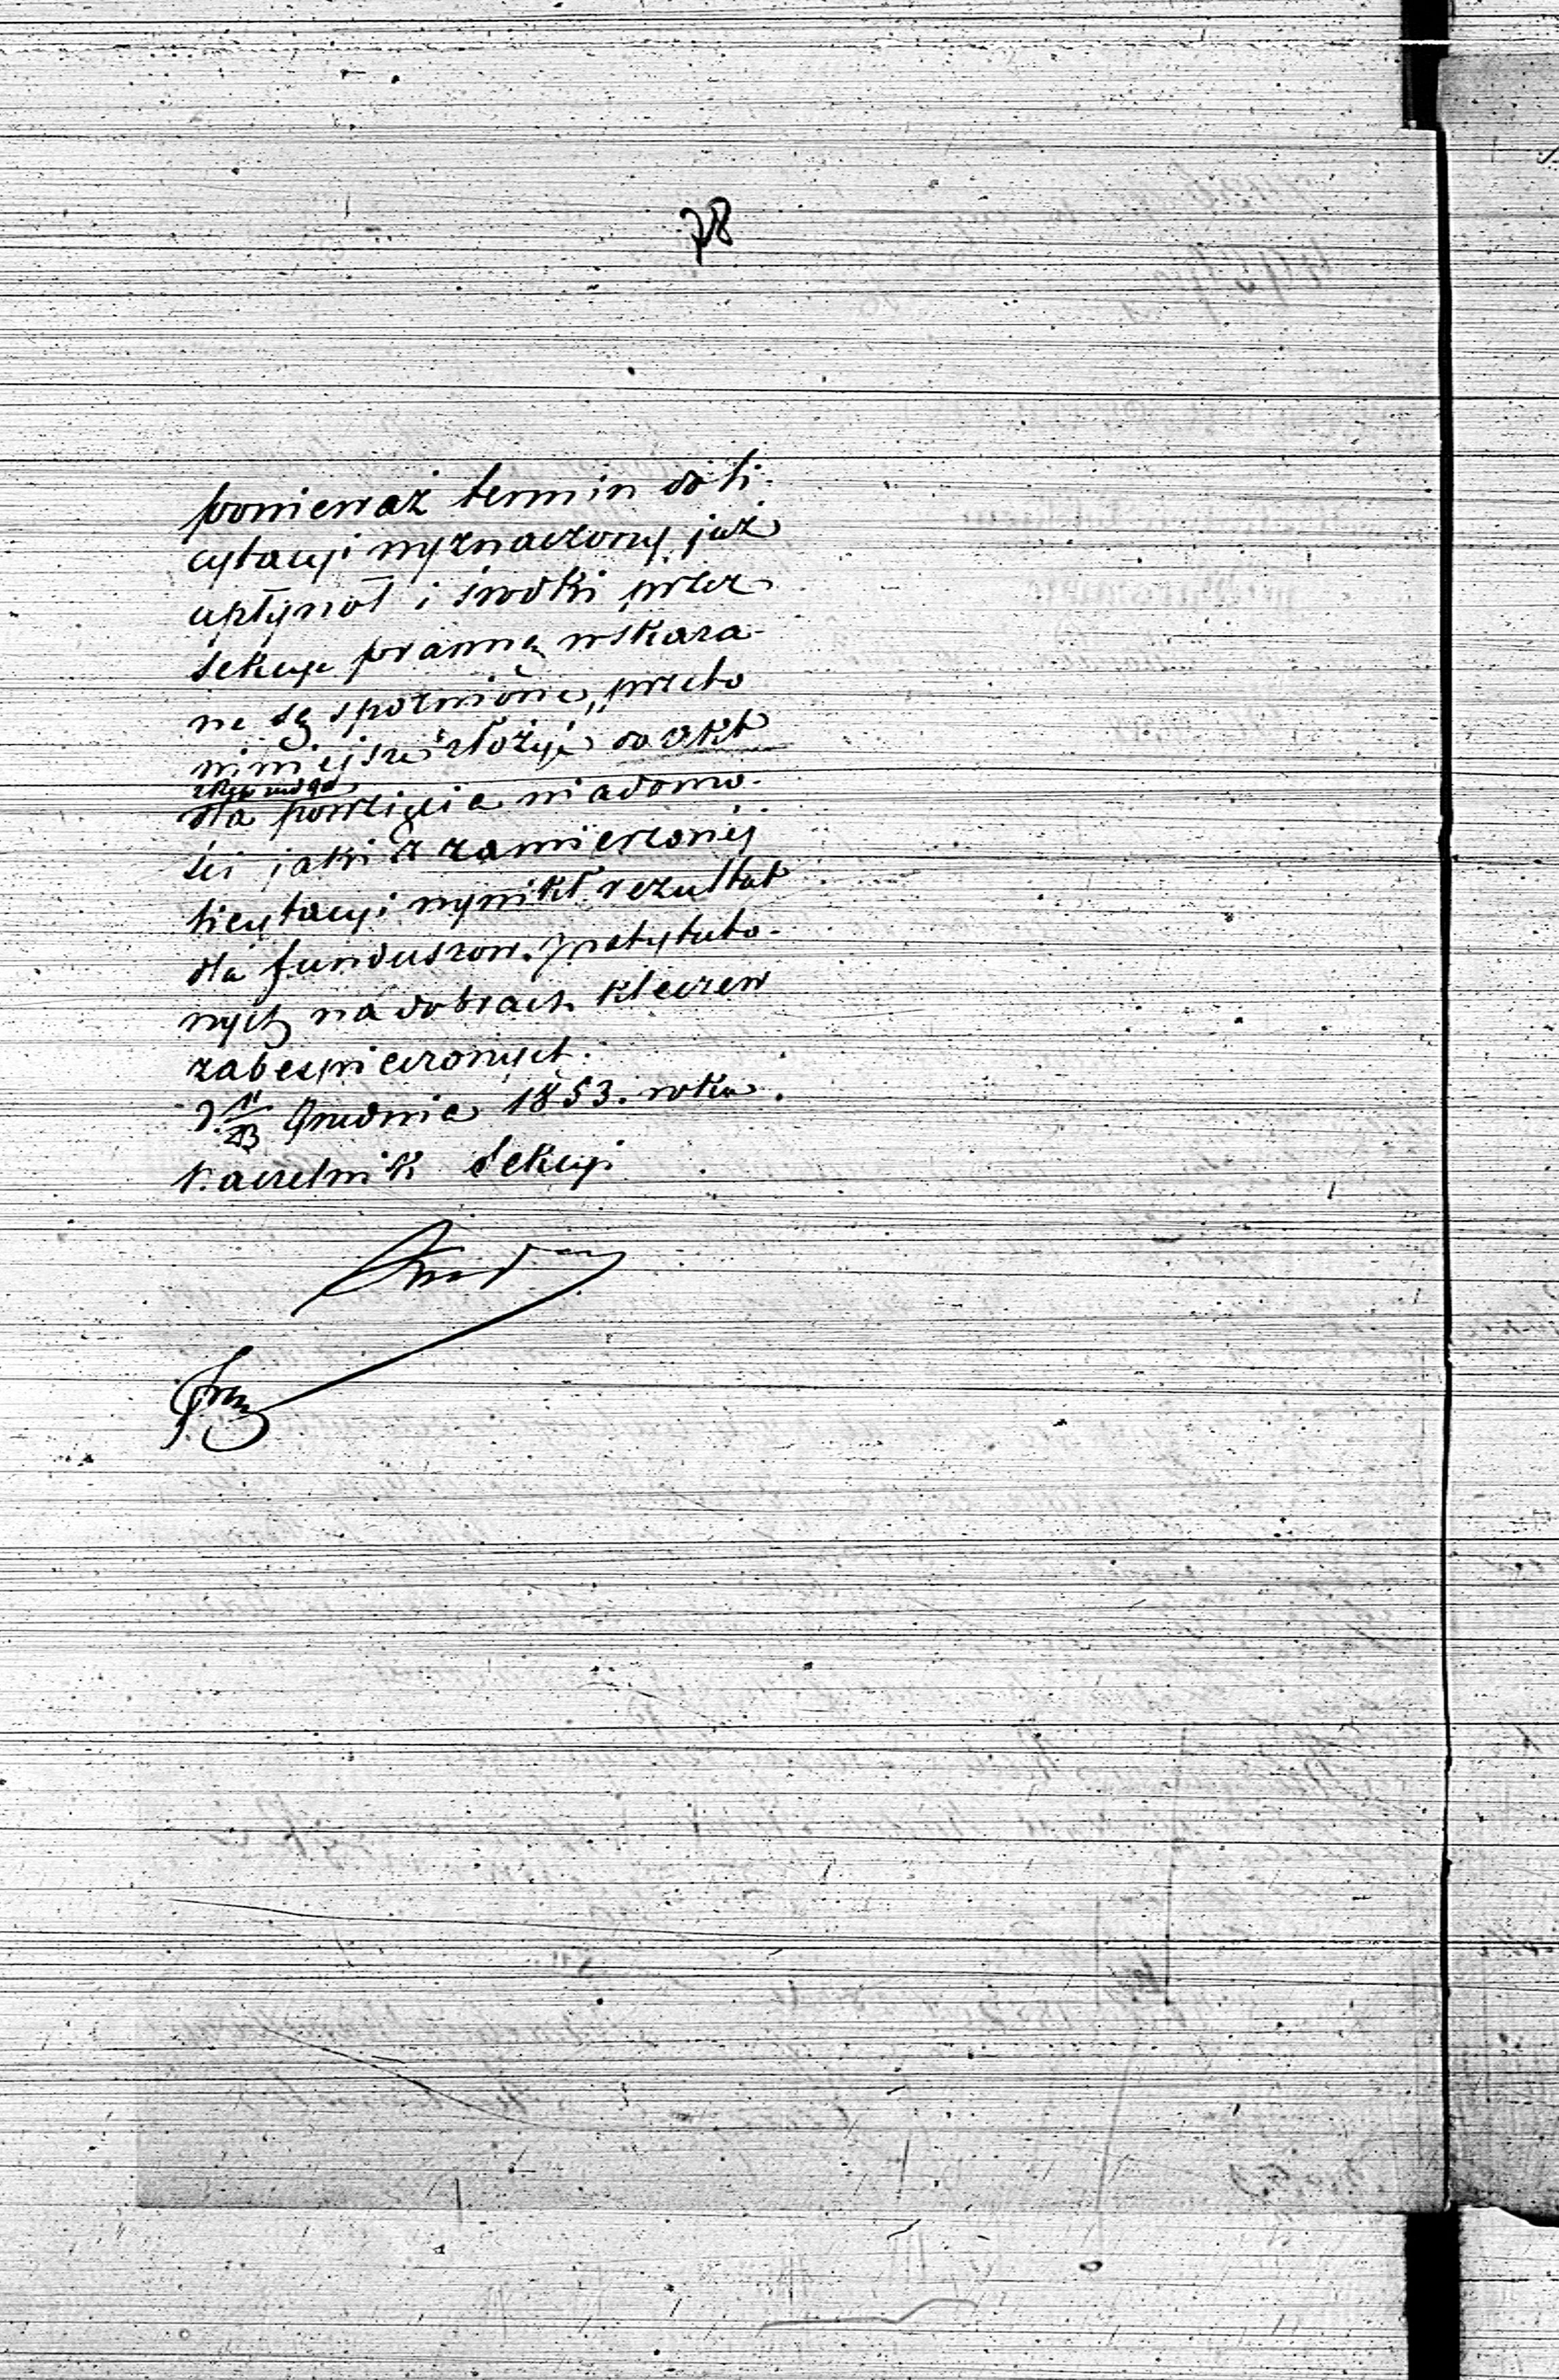 78
ponieważ termin do li-
cytacyi wyznaczony już
upłynoł i środki przez
Sekcye prawną wskaza-
ne są spoznione, przeto
niniejsze złożyć do akt
dla powzięcia wiadomo-
ści jaki z zamierzonej
licytacyi wynikł rezultat
dla funduszow Instytuto-
wych na dobrach Kleczew
zabespieczonych.
d. 11/23 Grudnia 1853. roku.
Naczelnik Sekcyi